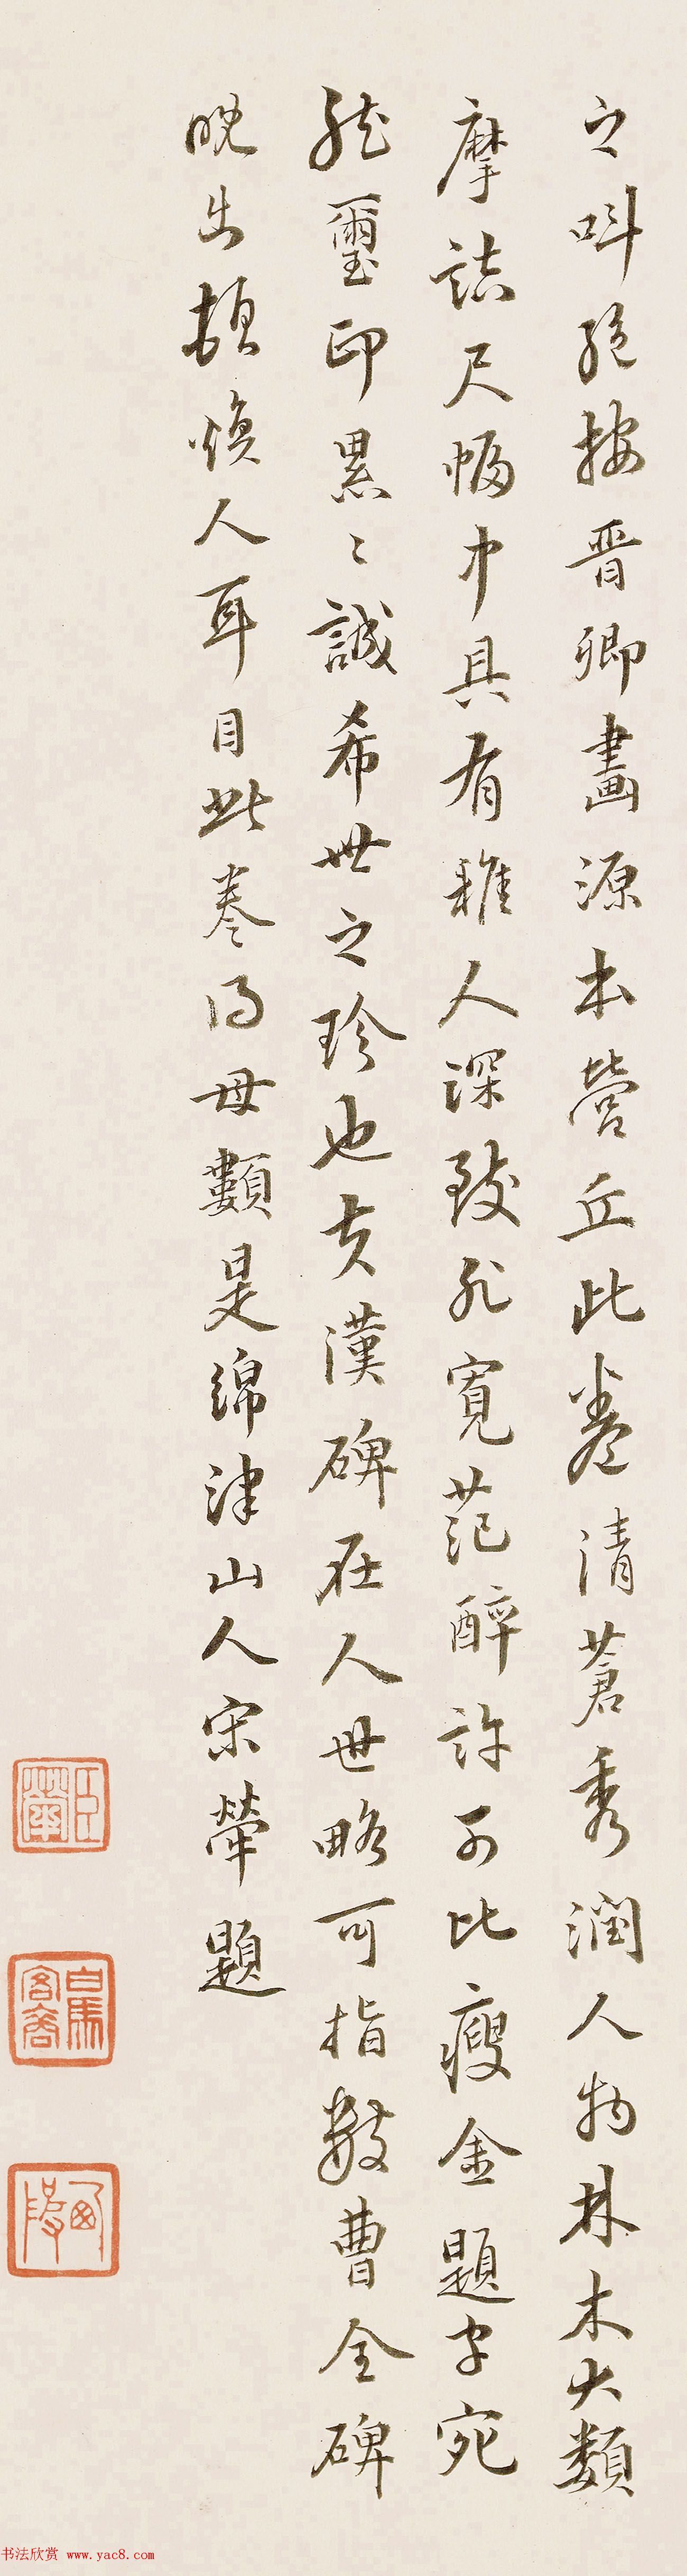 之叫絕按晉卿畫源出營丘此卷清蒼秀潤人物林木大類
摩詰尺幅中具有雅人深致於寬范醉許可比瘦金題字宛
然璽印累々誠希世之珍也夫漢碑在人世略可指數曹全碑
晚出頓煥人耳目此卷得毋類是綿津山人宋犖題
臣犖
白馬客裔
西陂
书法欣赏 www.yac8.com